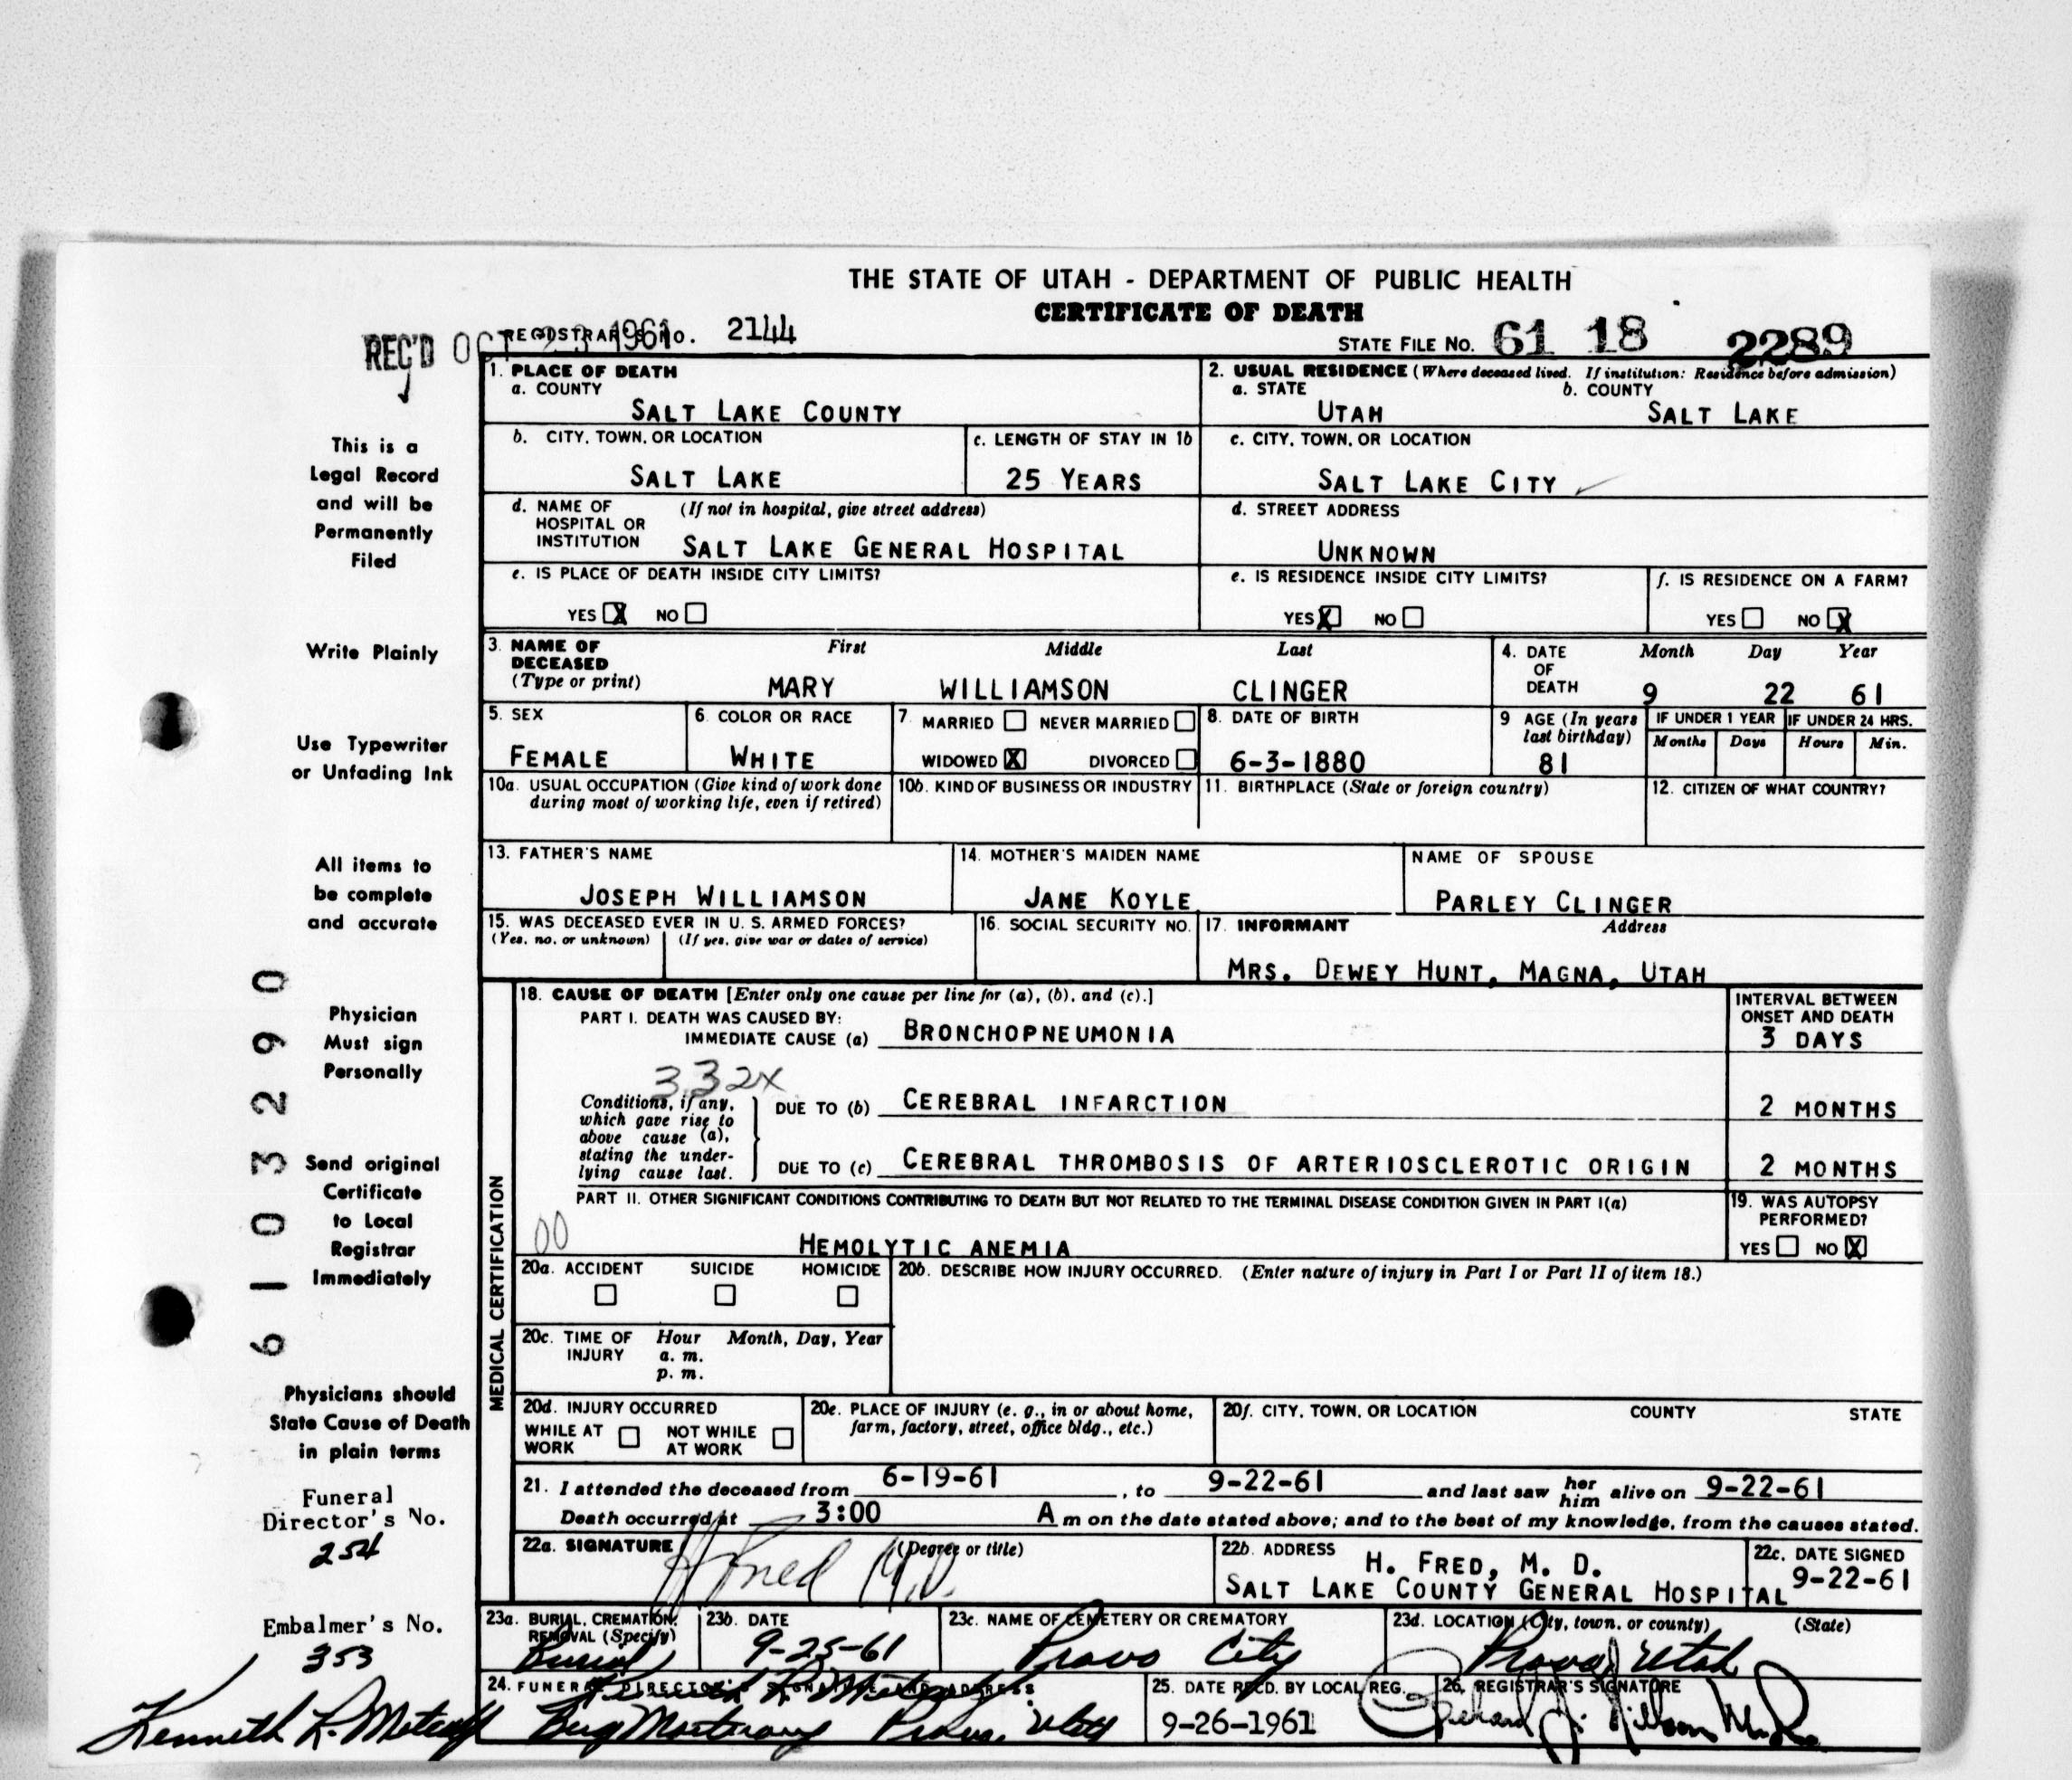 THE STATE OF UTAH - DEPARTMENT OF PUBLIC HEALTH
CERTIFICATE OF DEATH
REC'D OCT 23 1961
REGISTRAR'S NO. 2144
STATE FILE NO. 61 18 2289
1. PLACE OF DEATH
a. COUNTY
SALT LAKE COUNTY
2. USUAL RESIDENCE (Where deceased lived. If institution: Residence before admission)
a. STATE b. COUNTY
UTAH SALT LAKE
b. CITY, TOWN, OR LOCATION
SALT LAKE
c. LENGTH OF STAY IN 1b
25 YEARS
c. CITY, TOWN, OR LOCATION
SALT LAKE CITY
d. NAME OF HOSPITAL OR INSTITUTION (If not in hospital, give street address)
SALT LAKE GENERAL HOSPITAL
d. STREET ADDRESS
UNKNOWN
e. IS PLACE OF DEATH INSIDE CITY LIMITS?
YES X NO
e. IS RESIDENCE INSIDE CITY LIMITS?
YES X NO
f. IS RESIDENCE ON A FARM?
YES NO X
3. NAME OF DECEASED (Type or print)
First Middle Last
MARY WILLIAMSON CLINGER
4. DATE OF DEATH
Month Day Year
9 22 61
5. SEX
FEMALE
6. COLOR OR RACE
WHITE
7. MARRIED NEVER MARRIED
WIDOWED X DIVORCED
8. DATE OF BIRTH
6-3-1880
9 AGE (In years last birthday)
81
IF UNDER 1 YEAR
Months Days
IF UNDER 24 HRS.
Hours Min.
10a. USUAL OCCUPATION (Give kind of work done
during most of working life, even if retired)
10b. KIND OF BUSINESS OR INDUSTRY
11. BIRTHPLACE (State or foreign country)
12. CITIZEN OF WHAT COUNTRY?
13. FATHER'S NAME
JOSEPH WILLIAMSON
14. MOTHER'S MAIDEN NAME
JANE KOYLE
NAME OF SPOUSE
PARLEY CLINGER
15. WAS DECEASED EVER IN U. S. ARMED FORCES?
(Yes, no, or unknown) (If yes, give war or dates of service)
16. SOCIAL SECURITY NO.
17. INFORMANT Address
MRS. DEWEY HUNT, MAGNA, UTAH
MEDICAL CERTIFICATION
18. CAUSE OF DEATH [Enter only one cause per line for (a), (b), and (c).]
PART I. DEATH WAS CAUSED BY:
IMMEDIATE CAUSE (a) BRONCHOPNEUMONIA
INTERVAL BETWEEN
ONSET AND DEATH
3 DAYS
332X
Conditions, if any,
which gave rise to
above cause (a),
stating the under-
lying cause last.
DUE TO (b) CEREBRAL INFARCTION
2 MONTHS
DUE TO (c) CEREBRAL THROMBOSIS OF ARTERIOSCLEROTIC ORIGIN
2 MONTHS
PART II. OTHER SIGNIFICANT CONDITIONS CONTRIBUTING TO DEATH BUT NOT RELATED TO THE TERMINAL DISEASE CONDITION GIVEN IN PART I(a)
00
HEMOLYTIC ANEMIA
19. WAS AUTOPSY
PERFORMED?
YES NO X
20a. ACCIDENT SUICIDE HOMICIDE
20b. DESCRIBE HOW INJURY OCCURRED. (Enter nature of injury in Part I or Part II of item 18.)
20c. TIME OF INJURY
Hour Month, Day, Year
a. m.
p. m.
20d. INJURY OCCURRED
WHILE AT WORK NOT WHILE AT WORK
20e. PLACE OF INJURY (e. g., in or about home,
farm, factory, street, office bldg., etc.)
20f. CITY, TOWN, OR LOCATION COUNTY STATE
21. I attended the deceased from 6-19-61, to 9-22-61 and last saw her him alive on 9-22-61
Death occurred at 3:00 A m on the date stated above; and to the best of my knowledge, from the causes stated.
22a. SIGNATURE (Degree or title)
H Fred M.D.
22b. ADDRESS
H. FRED, M. D.
SALT LAKE COUNTY GENERAL HOSPITAL
22c. DATE SIGNED
9-22-61
23a. BURIAL, CREMATION, REMOVAL (Specify)
Burial
23b. DATE
9-25-61
23c. NAME OF CEMETERY OR CREMATORY
Provo City
23d. LOCATION (City, town, or county) (State)
Provo, Utah
24. FUNERAL DIRECTOR'S SIGNATURE AND ADDRESS
Kenneth L. Metcalf
Berg Mortuary Provo, Utah
25. DATE RECD. BY LOCAL REG.
9-26-1961
26. REGISTRAR'S SIGNATURE
This is a
Legal Record
and will be
Permanently
Filed
Write Plainly
Use Typewriter
or Unfading Ink
All items to
be complete
and accurate
Physician
Must sign
Personally
Send original
Certificate
to Local
Registrar
Immediately
Physicians should
State Cause of Death
in plain terms
Funeral
Director's No.
254
Embalmer's No.
353
Kenneth L. Metcalf
61 03290